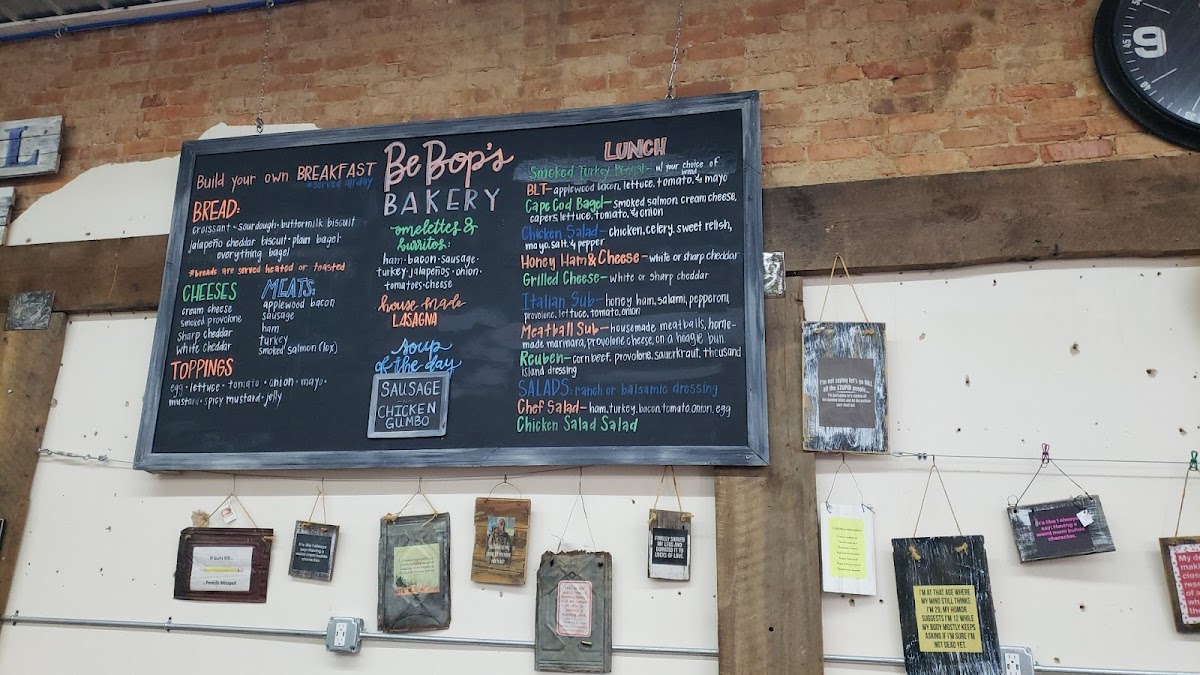 L
BeBop's
BAKERY
Build your own BREAKFAST
*served all day
BREAD:
croissant · sourdough · buttermilk biscuit
jalapeño cheddar biscuit · plain bagel
everything bagel
*breads are served heated or toasted
CHEESES
cream cheese
smoked provolone
sharp cheddar
white cheddar
MEATS:
applewood bacon
sausage
ham
turkey
smoked salmon (lox)
TOPPINGS
egg · lettuce · tomato · onion · mayo ·
mustard · spicy mustard · jelly
omelettes &
burritos:
ham · bacon · sausage ·
turkey · jalapeños · onion ·
tomatoes · cheese
house made
LASAGNA
soup
of the day
SAUSAGE
CHICKEN
GUMBO
LUNCH
Smoked Turkey - w/ your choice of
bread
BLT- applewood bacon, lettuce, tomato, & mayo
Cape Cod Bagel- smoked salmon, cream cheese,
capers, lettuce, tomato, & onion
Chicken Salad- chicken, celery, sweet relish,
mayo, salt, & pepper
Honey Ham & Cheese- white or sharp cheddar
Grilled Cheese- white or sharp cheddar
Italian Sub- honey ham, salami, pepperoni,
provolone, lettuce, tomato, onion
Meatball Sub- housemade meatballs, home-
made marinara, provolone cheese, on a hoagie bun
Reuben- corn beef, provolone, sauerkraut, thousand
island dressing
SALADS: ranch or balsamic dressing
Chef Salad- ham, turkey, bacon, tomato, onion, egg
Chicken Salad Salad
45
9
I'm not saying let's go kill
all the STUPID people...
It's like I always
say: Having a
weird mom builds
character.
It's like I always
say: Having a
weird mom builds
character.
FINALLY SHAVED
MY LEGS AND
DONATED IT TO
LOCKS OF LOVE.
I'M AT THAT AGE WHERE
MY MIND STILL THINKS
I'M 29, MY HUMOR
SUGGESTS I'M 12 WHILE
MY BODY MOSTLY KEEPS
ASKING IF I'M SURE I'M
NOT DEAD YET.